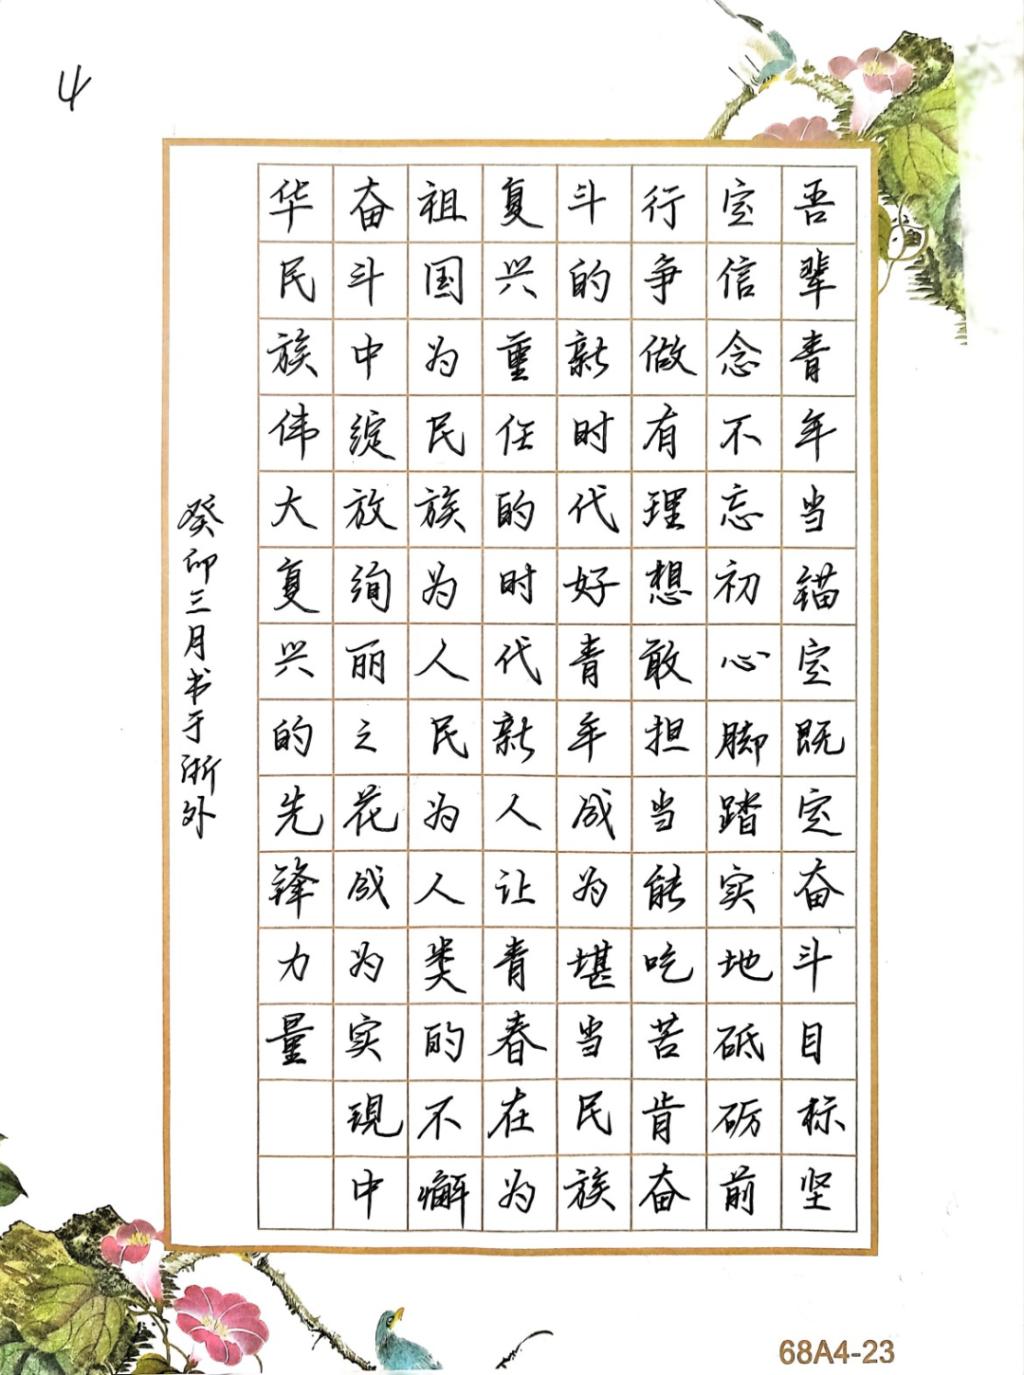 4
吾辈青年当锚定既定奋斗目标坚
定信念不忘初心脚踏实地砥砺前
行争做有理想敢担当能吃苦肯奋
斗的新时代好青年成为堪当民族
复兴重任的时代新人让青春在为
祖国为民族为人民为人类的不懈
奋斗中绽放绚丽之花成为实现中
华民族伟大复兴的先锋力量
癸卯三月书于浙外
68A4-23